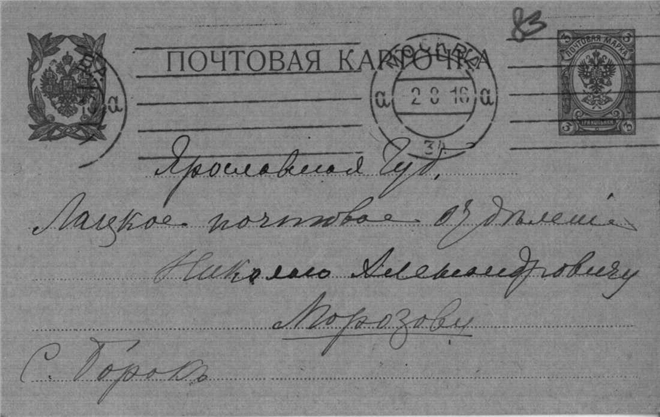 83
ПОЧТОВАЯ КАРТОЧКА
ПОЧТОВАЯ МАРКА
МОСКВА
а 2 8 16 а
Ярославская Губ.
Лацкое почтовое отдѣленіе
Николаю Александровичу
Морозову
С. Борокъ